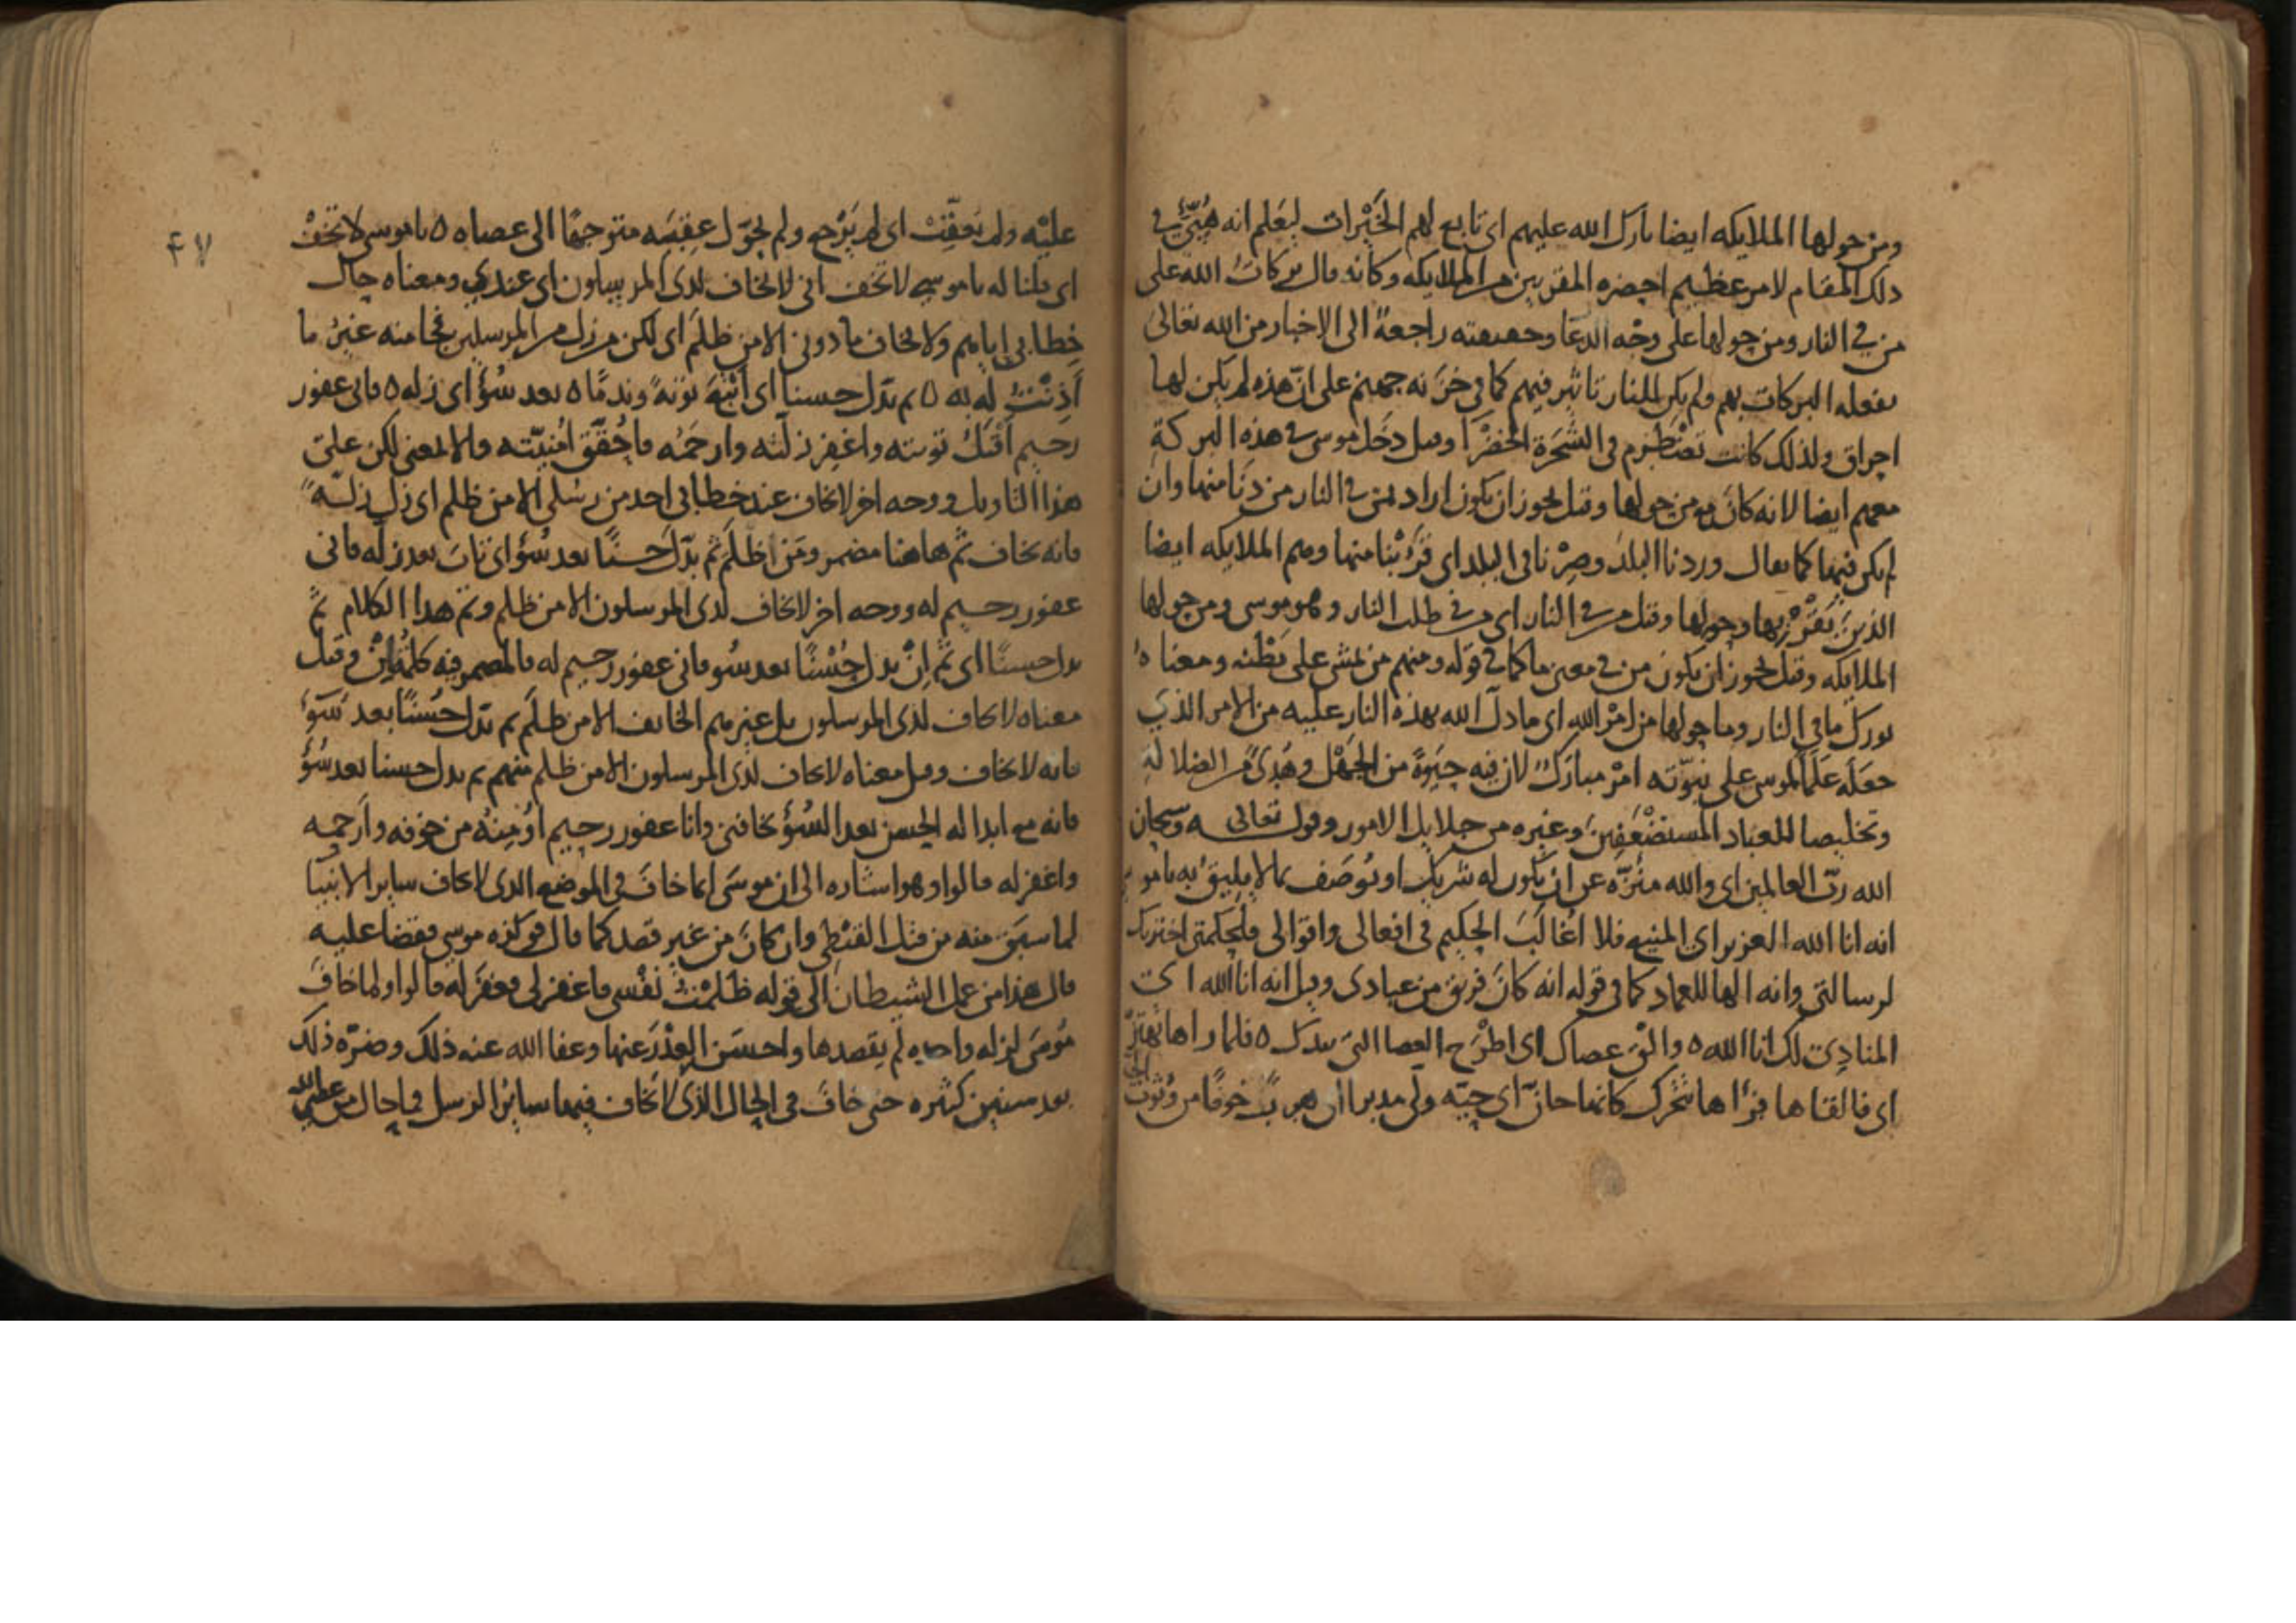 ومن حولها الملايكه ايضا بارك الله عليهم اى تابع لهم الخيرات ليعلم انه هيئ في
ذلك المقام لامر عظيم احضره المقربين من الملايكه وكانه قال بركات الله على
من في النار ومن حولها على وجه الدعا وحقيقته راجعة الى الاخبار من الله تعالى
بفعله البركات بهم ولم يكن للنار تاثير فيهم كما في خزنه جهنم على ان هذه لم يكن لها
احراق ولذلك كانت تضطرم في الشجرة الخضرا وقيل دخل موسى في هذه البركة
معهم ايضا لانه كان ممن حولها وقيل يجوز ان يكون اراد بمن في النار من دنا منها وان
لم يكن فيها كما يقال وردنا البلد وصرنا في البلد اى قربنا منها وهم الملايكه ايضا
الذين بقربها وحولها وقيل من في النار اى من في طلب النار وهو موسى ومن حولها
الملايكه وقيل يجوز ان يكون من في معنى ما كما في قوله ومنهم من يمشى على بطنه ومعناه
بورك ما في النار وما حولها من امر الله اى ما دل الله بهذه النار عليه من الامر الذي
جعله علما لموسى على نبوته امر مبارك لان فيه حيوة من الجهل وهدى من الضلالة
وتخليصا للعباد المستضعفين وغيره من جلايل الامور وقوله تعالى وسبحان
الله رب العالمين اى والله منزه عن ان يكون له شريك او يوصف بما لا يليق به يا موسى
انه انا الله العزيز اى المنيع فلا اغالب الحكيم في افعالى واقوالى فلحكمتى اخترتك
لرسالتى وانه الها للعماد كما في قوله انه كان فريق من عبادى وقيل انه انا الله اى
المنادى لك انا الله ٥ والق عصاك اى اطرح العصا التى بيدك ٥ فلما راها تهتز
اى فالقاها فراها تتحرك كانها جان اى حيه ولى مدبرا اى هرب خوفا من وثوب الحية
٤٧
عليه ولم يعقب اى لم يرجع ولم يحول عقبه متوجها الى عصاه ٥ يا موسى لا تخف
اى قلنا له يا موسى لا تخف انى لا يخاف لدى المرسلون اى عندي ومعناه حال
خطابى اياهم ولا يخاف مادونى الا من ظلم اى لكن من زل من المرسلين فجا منه غير ما
اذنت له به ٥ ثم بدل حسنا اى اتبع توبة وندما ٥ بعد سوء اى زله ٥ فانى غفور
رحيم اقبل توبته واغفر زلته وارحمه فاحقق امنيته والا لمعنى لكن على
هذا التاويل ووجه اخر لا يخاف عند خطابى احد من رسلى الا من ظلم اى زل زلة
فانه يخاف ثم هاهنا مضمر ومن ظلم ثم بدل حسنا بعد سوء اى تاب بعد زله فانى
غفور رحيم له ووجه اخر لا يخاف لدى المرسلون الا من ظلم وتم هذا الكلام ثم
بدل حسنا اى ثم ان بدل حسنا بعد سو فانى غفور رحيم له فالمضمر فيه كلمة ان وقيل
معناه لا يخاف لدى المرسلون بل غيرهم الخايف الا من ظلم ثم بدل حسنا بعد سوء
فانه لا يخاف وقيل معناه لا يخاف لدى المرسلون الا من ظلم منهم ثم بدل حسنا بعد سوء
فانه مع ابداله الحسن بعد السوء يخافنى وانا غفور رحيم اومنه من خوفه وارحمه
واغفر له قالوا وهو اشاره الى ان موسى انما خاف في الموضع الذى لا يخاف ساير الانبيا
لما سبق منه من قتل القبطى وان كان من غير قصد كما قال فوكزه موسى فقضا عليه
قال هذا من عمل الشيطان الى قوله ظلمت نفسى فاغفر لى فغفر له قالوا ولما خاف
موسى لزله واحده لم يقصدها واحسن العذر عنها وعفا الله عنه ذلك وضره ذلك
بعد سنين كثيره حتى خاف في الحال الذى لا يخاف فيها ساير الرسل فما حال من عظم